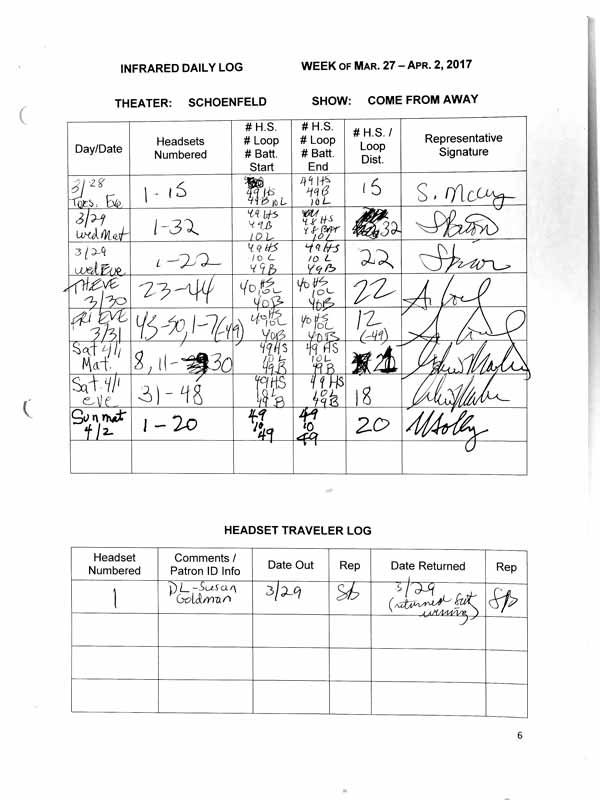 INFRARED DAILY LOG WEEK OF MAR. 27 – APR. 2, 2017
THEATER: SCHOENFELD SHOW: COME FROM AWAY
Day/Date
Headsets Numbered
# H.S. # Loop # Batt. Start
# H.S. # Loop # Batt. End
# H.S. / Loop Dist.
Representative Signature
3/28 Tues. Eve 1-15 49HS 49B 10L 49HS 49B 10L 15
3/29 wed Mat 1-32 49HS 49B 10L 48HS 48BAT 10L 32
3/29 wed Eve 1-22 49HS 10L 49B 49HS 10L 49B 22
TH EVE 3/30 23-44 40HS 10L 40B 40HS 10L 40B 22
FRI EVE 3/31 45-50, 1-7 (-49) 40HS 10L 40B 40HS 10L 40B 12 (-49)
Sat 4/1 Mat. 8, 11- 30 49HS 10L 49B 49HS 10L 49B 21
Sat. 4/1 eve 31-48 49HS 10L 49B 49HS 10L 49B 18
Sun mat 4/2 1-20 49 10 49 49 10 49 20
HEADSET TRAVELER LOG
Headset Numbered
Comments / Patron ID Info
Date Out
Rep
Date Returned
Rep
1 DL-Susan Goldman 3/29 SB 3/29 (returned Sat SB
6